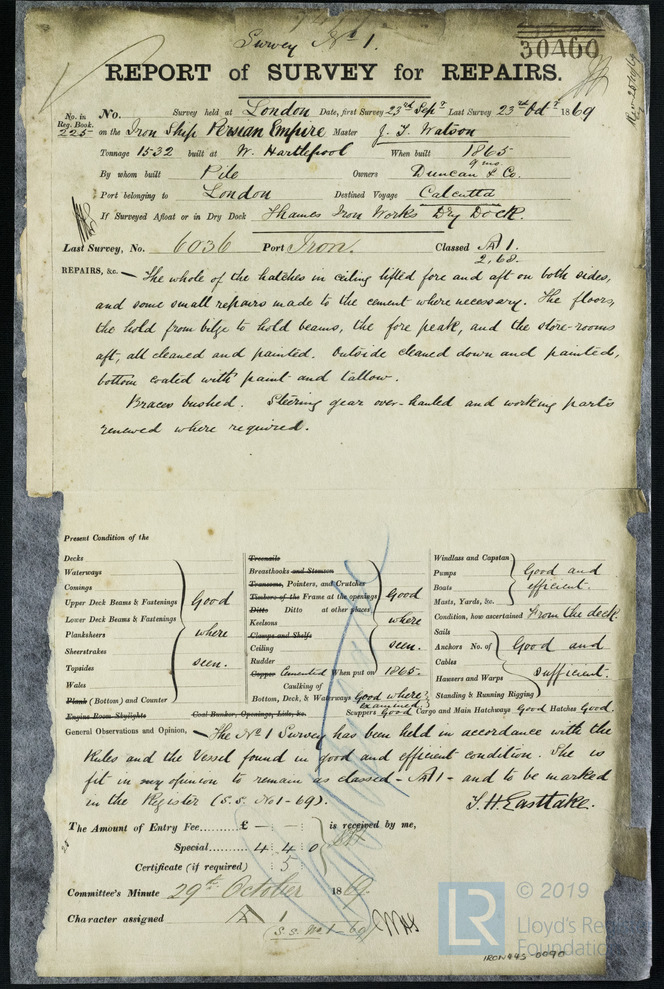 Survey No 1.
30400
REPORT of SURVEY for REPAIRS.
No. in Reg. Book. 225
No. Survey held at London Date, first Survey 23rd Sept Last Survey 23rd Oct 1869
on the Iron Ship Persian Empire Master J. T. Watson
Tonnage 1532 built at W. Hartlepool When built 1865
9 mo.
By whom built Pile Owners Duncan & Co.
Port belonging to London Destined Voyage Calcutta
If Surveyed Afloat or in Dry Dock Thames Iron Works Dry Dock.
Last Survey, No. 6036 Port Iron. Classed A 1.
2,68.
REPAIRS, &c. — The whole of the hatches in ceiling lifted fore and aft on both sides,
and some small repairs made to the cement where necessary. The floors,
the hold from bilge to hold beams, the fore peak, and the store-rooms
aft, all cleaned and painted. Outside cleaned down and painted,
bottom coated with paint and tallow.
Braces bushed. Steering gear over-hauled and working parts
renewed where required.
Present Condition of the
Decks
Waterways
Comings
Upper Deck Beams & Fastenings
Lower Deck Beams & Fastenings
Planksheers
Sheerstrakes
Topsides
Wales
Plank (Bottom) and Counter
Good
where
seen.
Treenails
Breasthooks and Stemson
Transoms, Pointers, and Crutches
Timbers of the Frame at the openings
Ditto Ditto at other places
Keelsons
Clamps and Shelfs
Ceiling
Rudder
Good
where
seen.
Copper Cemented When put on 1865.
Caulking of
Bottom, Deck, & Waterways Good where examined.
Windlass and Capstan
Pumps
Boats
Masts, Yards, &c.
Good and
efficient.
Condition, how ascertained From the deck.
Sails
Anchors No. of
Cables
Hausers and Warps
Standing & Running Rigging
Good and
sufficient.
Engine Room Skylights Coal Bunker, Openings, Lids, &c. Scuppers Good Cargo and Main Hatchways Good Hatches Good.
General Observations and Opinion, — The No 1 Survey has been held in accordance with the
Rules and the Vessel found in good and efficient condition. She is
fit in my opinion to remain as classed - A1 - and to be marked
in the Register (S.S. No 1-69).
T. H. Eastlake.
The Amount of Entry Fee......... £ — — is received by me,
Special......... 4 4 0
Certificate (if required) : 5
Committee's Minute 29th October 1869.
Character assigned A 1
(S.S. No 1-69)
LR
© 2019
Lloyd's Re
Foundation
IRON445-0090